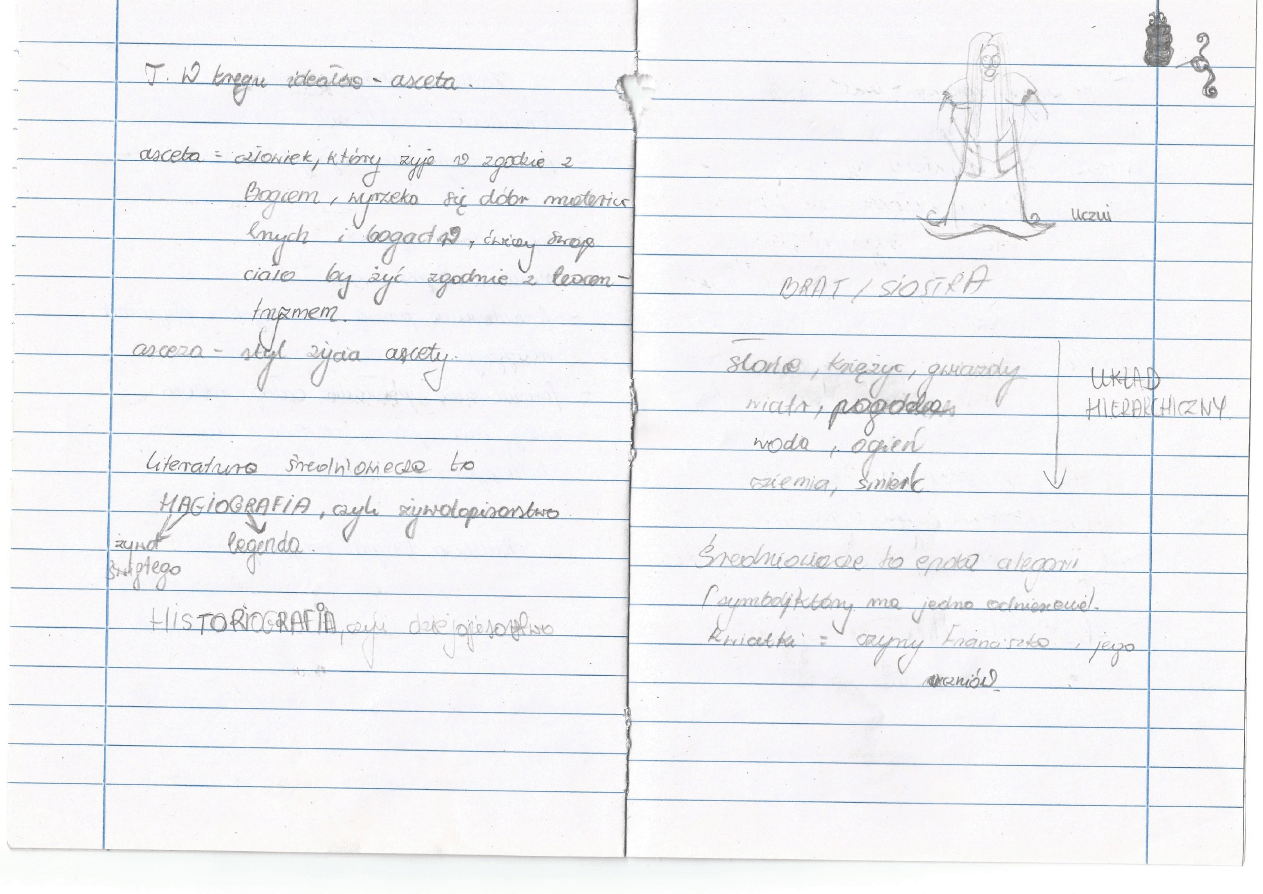 T. W kręgu ideałów - asceta.
asceta = człowiek, który żyje w zgodzie z
Bogiem, wyrzeka się dóbr material
lnych i bogactw, ćwiczy swoje
ciało by żyć zgodnie z teocen-
tryzmem.
asceza - styl życia ascety.
Literatura średniowiecza to
HAGIOGRAFIA, czyli żywotopisarstwo
żywot legenda.
świętego
HISTORIOGRAFIA, czyli dziejopisarstwo
uczni
BRAT / SIOSTRA
słońce, księżyc, gwiazdy
wiatr, pogoda
woda, ogień
ziemia, śmierć
UKŁAD
HIERARCHICZNY
Średniowiecze to epoka alegorii
(symbol, który ma jedno odniesienie).
kwiatki = czyny Franciszka i jego
uczniów